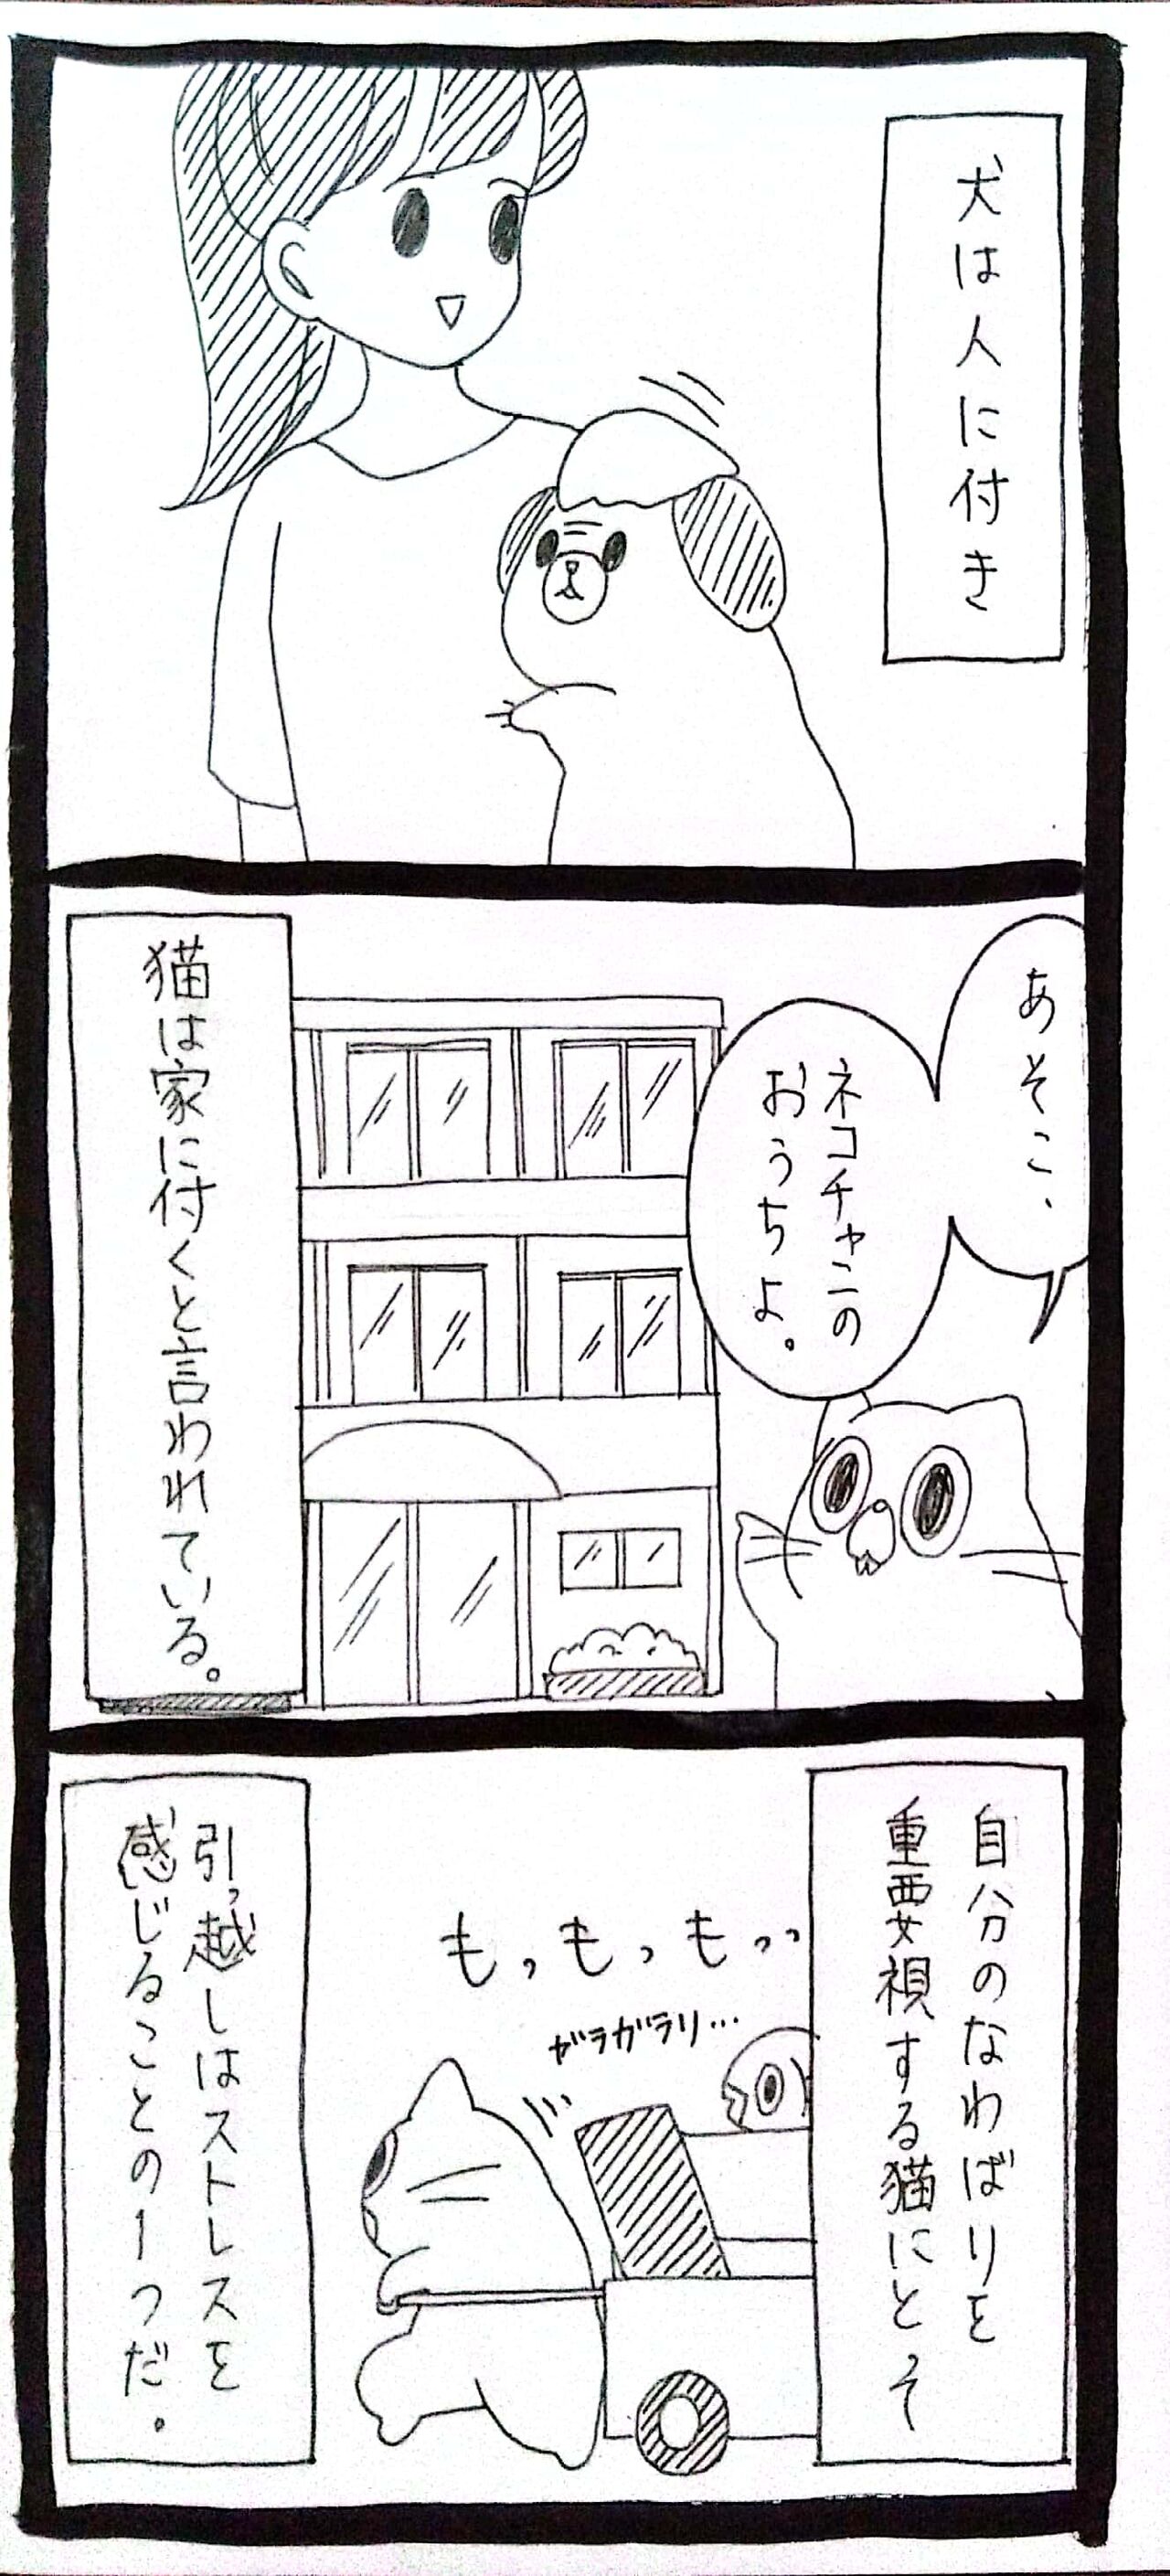 犬は人に付き
あそこ、
ネコチャンの
おうちよ。
猫は家に付くと言われている。
自分のなわばりを
重要視する猫にとって
もっもっもっっ
ガラガラリ…
引っ越しはストレスを
感じることの1つだ。